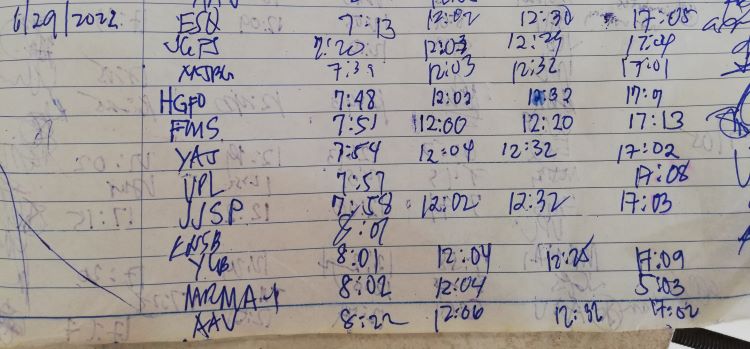 6/29/2022 ESQ 7:13 12:02 12:30 17:05
7:20 12:03 12:29
7:39 12:03 12:32 17:01
HGFO 7:48 12:02 12:32 17:7
FMS 7:51 12:00 12:20 17:13
YAJ 7:54 12:04 12:32 17:02
VPL 7:57 17:08
JJSP 7:58 12:02 12:32 17:03
KNSB 8:01
YUB 8:01 12:04 12:25 17:09
MRMA 8:02 12:04 5:03
AAV 8:22 12:06 12:32 17:02